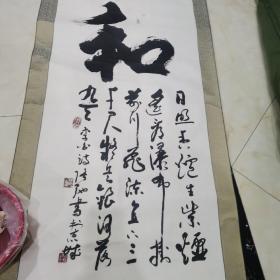 和
日照香炉生紫烟
遥看瀑布挂
前川飞流直下三
千尺疑是银河落
九天